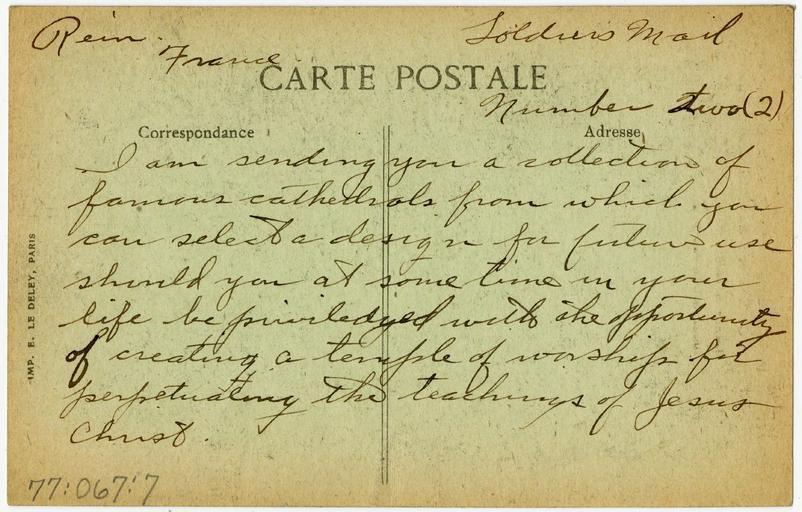 Rein.
France
Soldiers Mail
CARTE POSTALE
Number two (2)
Correspondance
Adresse
I am sending you a collection of
famous cathedrals from which you
can select a design for future use
should you at some time in your
life be priviledged with the opportunity
of creating a temple of worship for
perpetuating the teachings of Jesus
Christ.
IMP. E. LE DELEY, PARIS
77:067:7